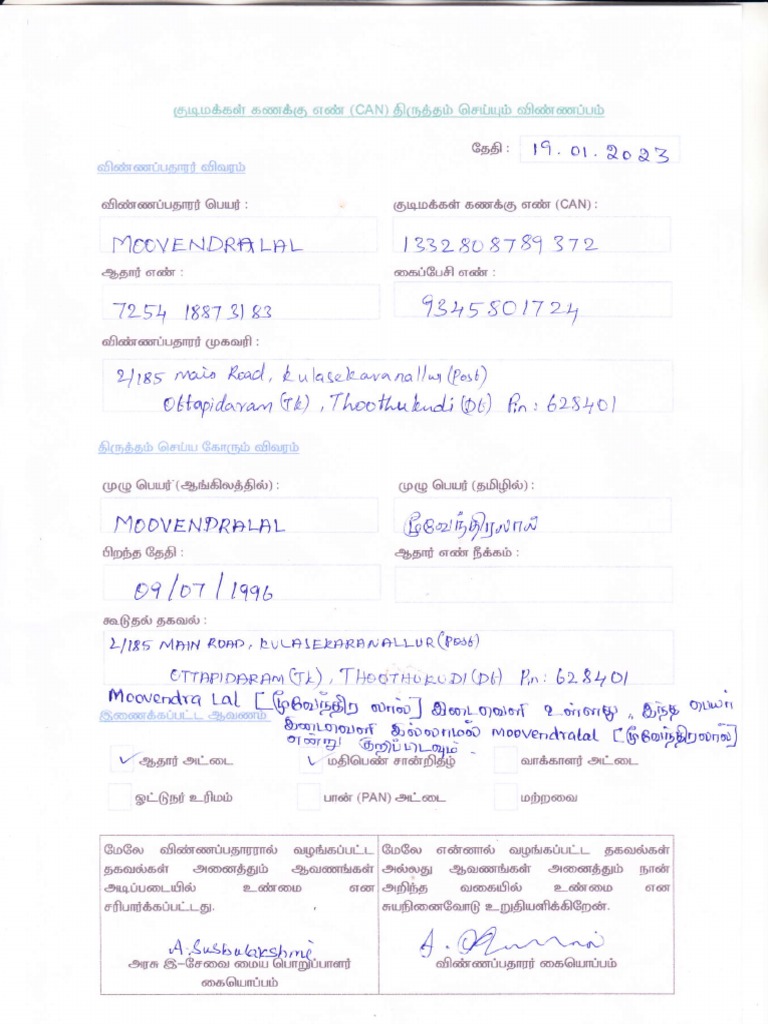 குடிமக்கள் கணக்கு எண் (CAN) திருத்தம் செய்யும் விண்ணப்பம்
தேதி : 19.01.2023
விண்ணப்பதாரர் விவரம்
விண்ணப்பதாரர் பெயர் : குடிமக்கள் கணக்கு எண் (CAN) :
MOOVENDRALAL 1332808789372
ஆதார் எண் : கைப்பேசி எண் :
7254 1887 3183 9345801724
விண்ணப்பதாரர் முகவரி :
2/185 Main Road, Kulasekaranallur (Post)
Ottapidaram (Tk), Thoothukudi (Dt) Pin : 628401
திருத்தம் செய்ய கோரும் விவரம்
முழு பெயர் (ஆங்கிலத்தில்) : முழு பெயர் (தமிழில்) :
MOOVENDRALAL மூவேந்திரலால்
பிறந்த தேதி : ஆதார் எண் நீக்கம் :
09/07/1996
கூடுதல் தகவல் :
2/185 MAIN ROAD, KULASEKARANALLUR (Post)
OTTAPIDARAM (Tk), THOOTHUKUDI (Dt) Pin : 628401
Moovendra Lal [மூவேந்திர லால்] இடைவெளி உள்ளது, இந்த பெயர்
இணைக்கப்பட்ட ஆவணம் இடைவெளி இல்லாமல் Moovendralal [மூவேந்திரலால்]
என்று குறிப்பிடவும்.
✓ ஆதார் அட்டை ✓ மதிபெண் சான்றிதழ் வாக்காளர் அட்டை
ஓட்டுநர் உரிமம் பான் (PAN) அட்டை மற்றவை
மேலே விண்ணப்பதாரரால் வழங்கப்பட்ட
தகவல்கள் அனைத்தும் ஆவணங்கள்
அடிப்படையில் உண்மை என
சரிபார்க்கப்பட்டது.
A. Subbulakshmi
அரசு இ-சேவை மைய பொறுப்பாளர்
கையொப்பம்
மேலே என்னால் வழங்கப்பட்ட தகவல்கள்
அல்லது ஆவணங்கள் அனைத்தும் நான்
அறிந்த வகையில் உண்மை என
சுயநினைவோடு உறுதியளிக்கிறேன்.
விண்ணப்பதாரர் கையொப்பம்